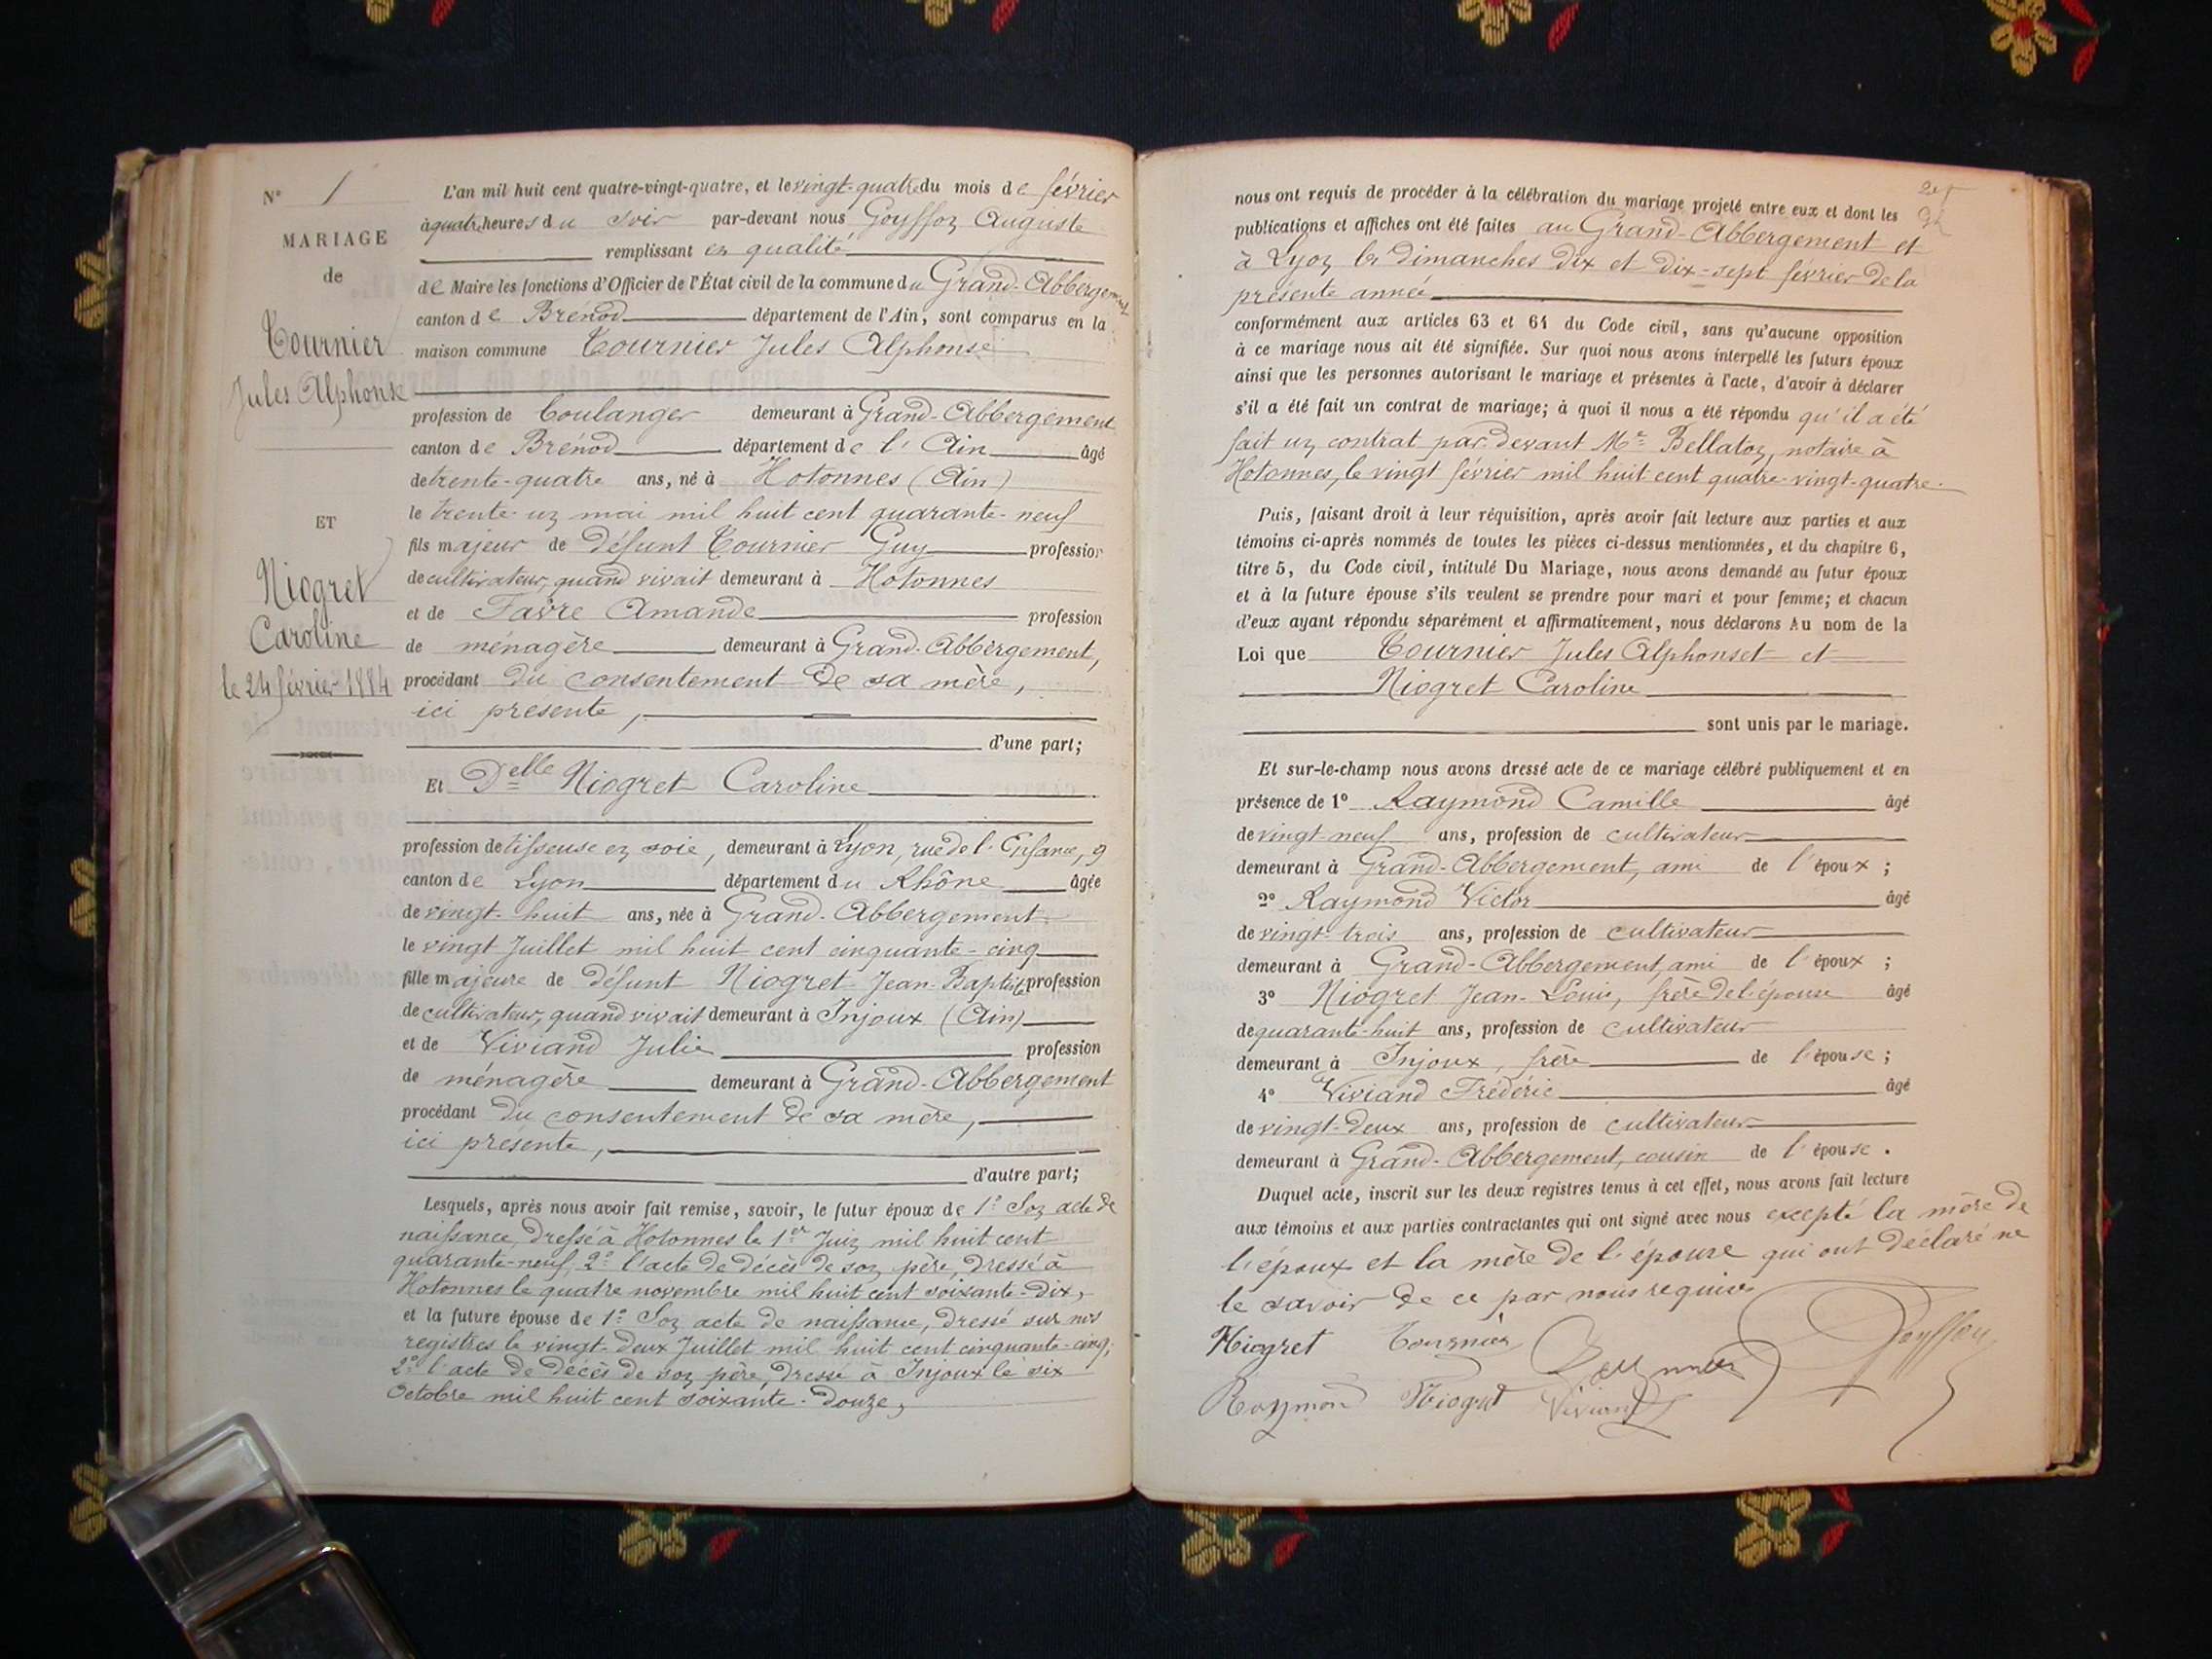 N° 1
MARIAGE
de
Tournier
Jules Alphonse
ET
Niogret
Caroline
le 24 février 1884
L'an mil huit cent quatre-vingt-quatre, et le vingt-quatre du mois de février
à quatre heures du soir par-devant nous Goyffon Auguste
remplissant en qualité
de Maire les fonctions d'Officier de l'État civil de la commune du Grand-Abbergement
canton de Brénod département de l'Ain, sont comparus en la
maison commune Tournier Jules Alphonse
profession de boulanger demeurant à Grand-Abbergement
canton de Brénod département de l'Ain âgé
de trente-quatre ans, né à Hotonnes (Ain)
le trente-un mai mil huit cent quarante-neuf
fils majeur de défunt Tournier Guy profession
de cultivateur, quand vivait demeurant à Hotonnes
et de Favre Amande profession
de ménagère demeurant à Grand-Abbergement,
procédant du consentement de sa mère,
ici présente,
d'une part;
Et Delle Niogret Caroline
profession de tisseuse en soie, demeurant à Lyon, rue de l'Enfance, 9
canton de Lyon département du Rhône âgée
de vingt-huit ans, née à Grand-Abbergement
le vingt Juillet mil huit cent cinquante-cinq
fille majeure de défunt Niogret Jean-Baptiste profession
de cultivateur, quand vivait demeurant à Injoux (Ain)
et de Viviand Julie profession
de ménagère demeurant à Grand-Abbergement
procédant du consentement de sa mère,
ici présente,
d'autre part;
Lesquels, après nous avoir fait remise, savoir, le futur époux de 1° Son acte de
naissance, dressé à Hotonnes le 1er Juin mil huit cent
quarante-neuf, 2° l'acte de décès de son père, dressé à
Hotonnes le quatre novembre mil huit cent soixante-dix,
et la future épouse de 1° Son acte de naissance, dressé sur nos
registres le vingt-deux Juillet mil huit cent cinquante-cinq,
2° l'acte de décès de son père, dressé à Injoux le six
Octobre mil huit cent soixante-douze,
nous ont requis de procéder à la célébration du mariage projeté entre eux et dont les
publications et affiches ont été faites au Grand-Abbergement et
à Lyon les dimanches dix et dix-sept février de la
présente année
conformément aux articles 63 et 64 du Code civil, sans qu'aucune opposition
à ce mariage nous ait été signifiée. Sur quoi nous avons interpellé les futurs époux
ainsi que les personnes autorisant le mariage et présentes à l'acte, d'avoir à déclarer
s'il a été fait un contrat de mariage; à quoi il nous a été répondu qu'il a été
fait un contrat par devant Me Bellaton, notaire à
Hotonnes, le vingt février mil huit cent quatre-vingt-quatre.
Puis, faisant droit à leur réquisition, après avoir fait lecture aux parties et aux
témoins ci-après nommés de toutes les pièces ci-dessus mentionnées, et du chapitre 6,
titre 5, du Code civil, intitulé Du Mariage, nous avons demandé au futur époux
et à la future épouse s'ils veulent se prendre pour mari et pour femme; et chacun
d'eux ayant répondu séparément et affirmativement, nous déclarons Au nom de la
Loi que Tournier Jules Alphonset et
Niogret Caroline
sont unis par le mariage.
Et sur-le-champ nous avons dressé acte de ce mariage célébré publiquement et en
présence de 1° Raymond Camille âgé
de vingt-neuf ans, profession de cultivateur
demeurant à Grand-Abbergement, ami de l'époux;
2° Raymond Victor âgé
de vingt-trois ans, profession de cultivateur
demeurant à Grand-Abbergement, ami de l'époux;
3° Niogret Jean-Louis, frère de l'épouse âgé
de quarante-huit ans, profession de cultivateur
demeurant à Injoux, frère de l'épouse;
4° Viviand Frédéric âgé
de vingt-deux ans, profession de cultivateur
demeurant à Grand-Abbergement, cousin de l'épouse.
Duquel acte, inscrit sur les deux registres tenus à cet effet, nous avons fait lecture
aux témoins et aux parties contractantes qui ont signé avec nous excepté la mère de
l'époux et la mère de l'épouse qui ont déclaré ne
le savoir de ce par nous requises
Niogret Tournier Goyffon
Raymond Niogret Viviand